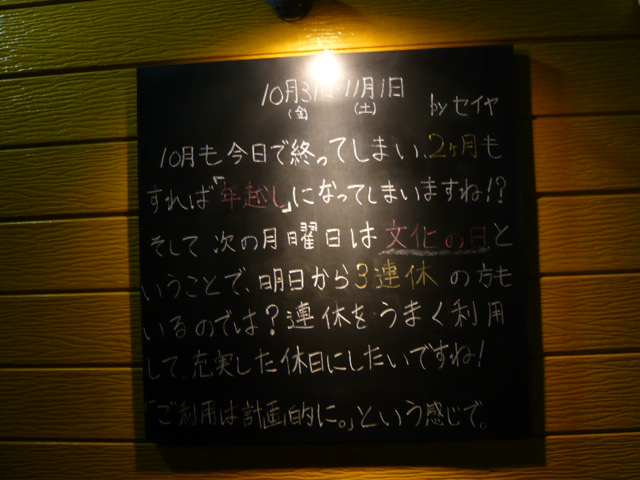 10月31日~11月1日
(金) (土) byセイヤ
10月も今日で終ってしまい、2ヶ月も
すれば「年越し」になってしまいますね!?
そして次の月曜日は文化の日と
いうことで、明日から3連休の方も
いるのでは?連休をうまく利用
して、充実した休日にしたいですね!
「ご利用は計画的に。」という感じで。